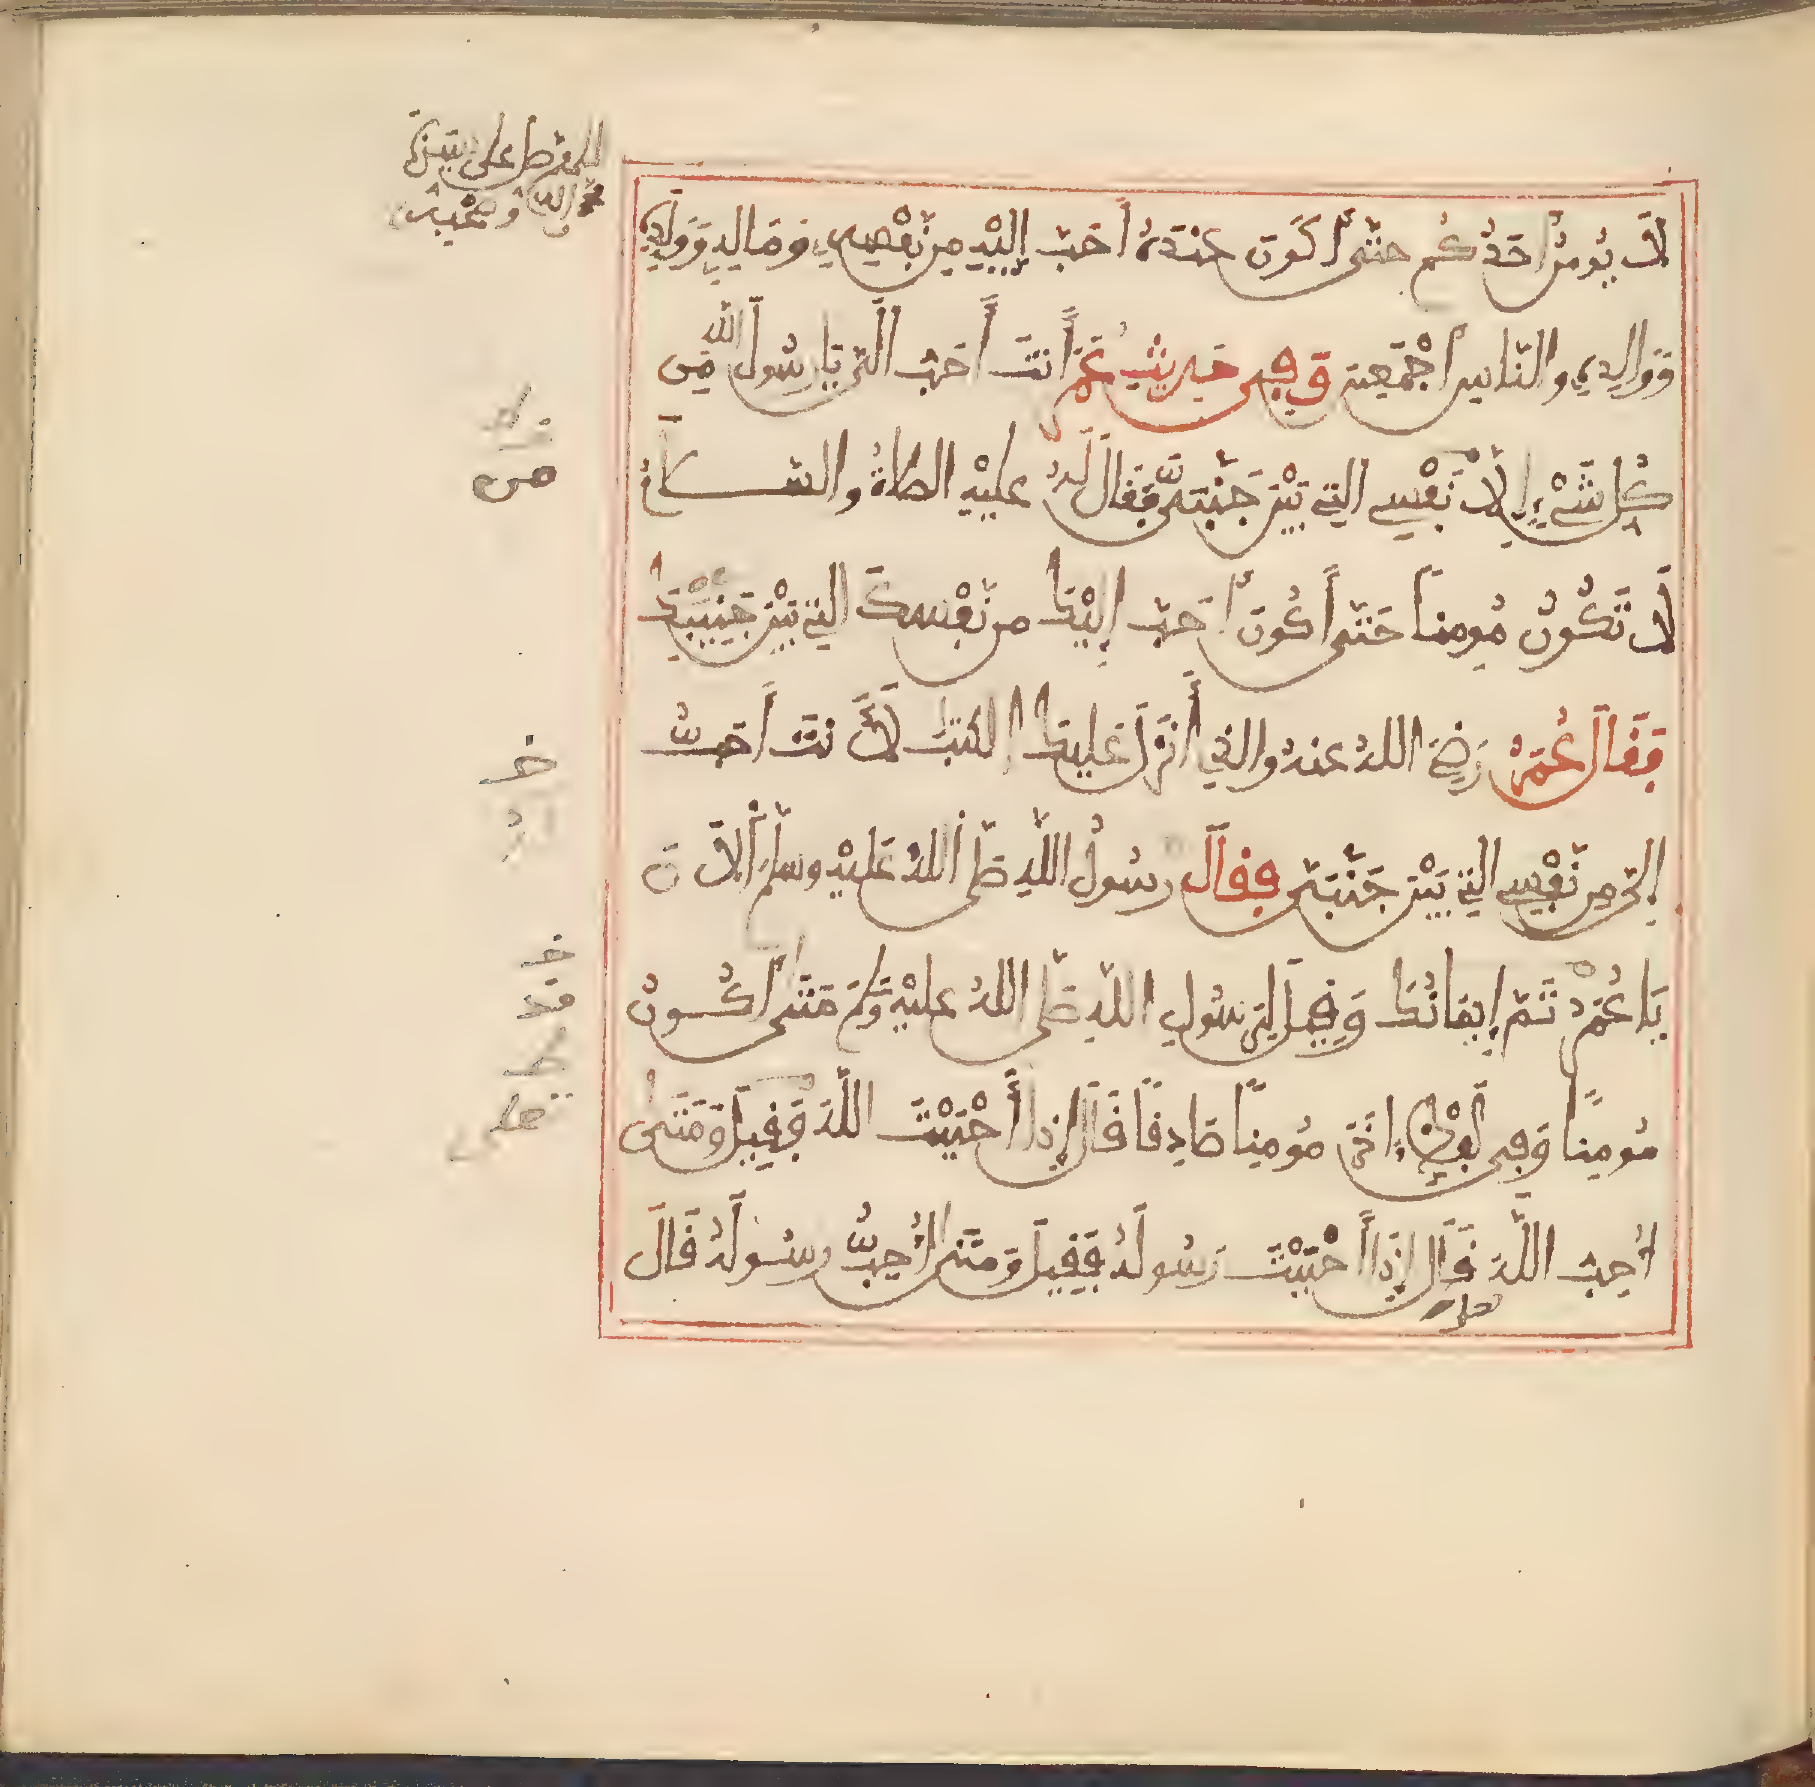 لَا يُومِنُ أَحَدُكُمْ حَتَّى أَكُونَ عِنْدَهُ أَحَبَّ إِلَيْهِ مِن نَّفْسِهِ وَمَالِهِ وَوَلَدِهِ
وَوَالِدِهِ وَالنَّاسِ أَجْمَعِينَ وَفِي حَدِيثِ عُمَرَ أَنْتَ أَحَبُّ إِلَيَّ يَا رَسُولَ اللهِ مِن
كُلِّ شَيْءٍ إِلَّا نَفْسِي الَّتِي بَيْنَ جَنْبَيَّ فَقَالَ لَهُ عَلَيْهِ الصَّلَاةُ وَالسَّلَامُ
لَا تَكُونُ مُومِنًا حَتَّى أَكُونَ أَحَبَّ إِلَيْكَ مِن نَّفْسِكَ الَّتِي بَيْنَ جَنْبَيْكَ
فَقَالَ عُمَرُ رَضِيَ اللهُ عَنْهُ وَالَّذِي أَنْزَلَ عَلَيْكَ الْكِتَبَ لَأَنْتَ أَحَبُّ
إِلَيَّ مِن نَّفْسِي الَّتِي بَيْنَ جَنْبَيَّ فَقَالَ رَسُولُ اللهِ صَلَّى اللهُ عَلَيْهِ وَسَلَّمَ الْآنَ
يَا عُمَرُ تَمَّ إِيمَانُكَ وَقِيلَ لِرَسُولِ اللهِ صَلَّى اللهُ عَلَيْهِ وَسَلَّمَ مَتَى أَكُونُ
مُومِنًا وَفِي لَفْظٍ ءَاخَرَ مُومِنًا صَادِقًا قَالَ إِذَا أَحْبَبْتَ اللهَ فَقِيلَ وَمَتَى
أُحِبُّ اللهَ قَالَ إِذَا أَحْبَبْتَ رَسُولَهُ فَقِيلَ وَمَتَى أُحِبُّ رَسُولَهُ قَالَ